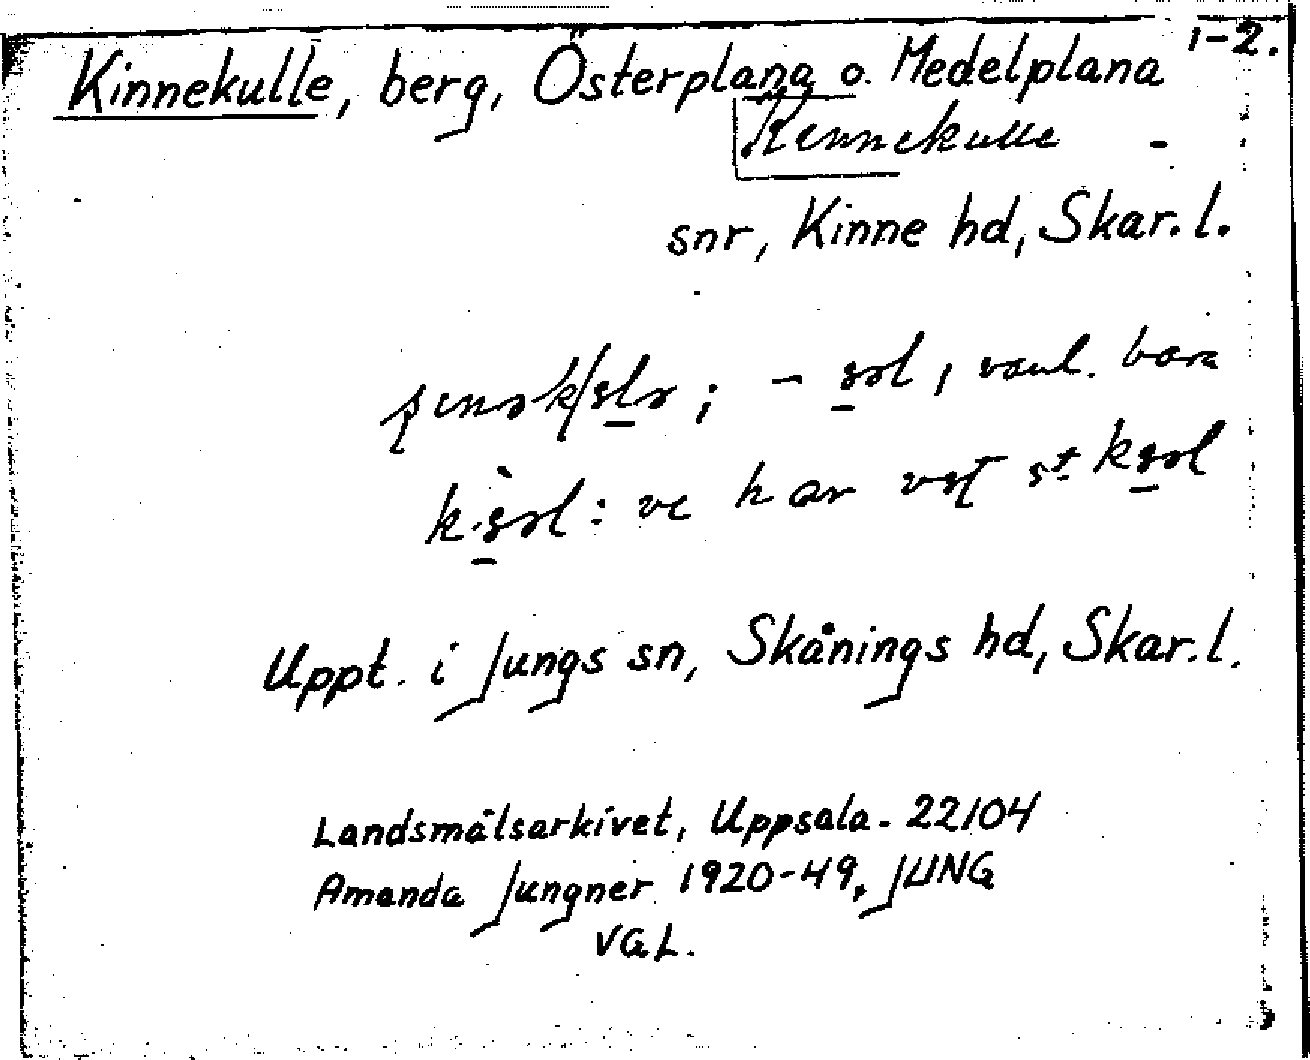 Kinnekulle, berg, Österplana o. Medelplana 1-2.
Kinnekulle
snr, Kinne hd, Skar. l.
; vanl. bara
: har
Uppt. i Jungs sn, Skånings hd, Skar. l.
Landsmålsarkivet, Uppsala. 22104
Amanda Jungner 1920-49. JUNG
VGL.